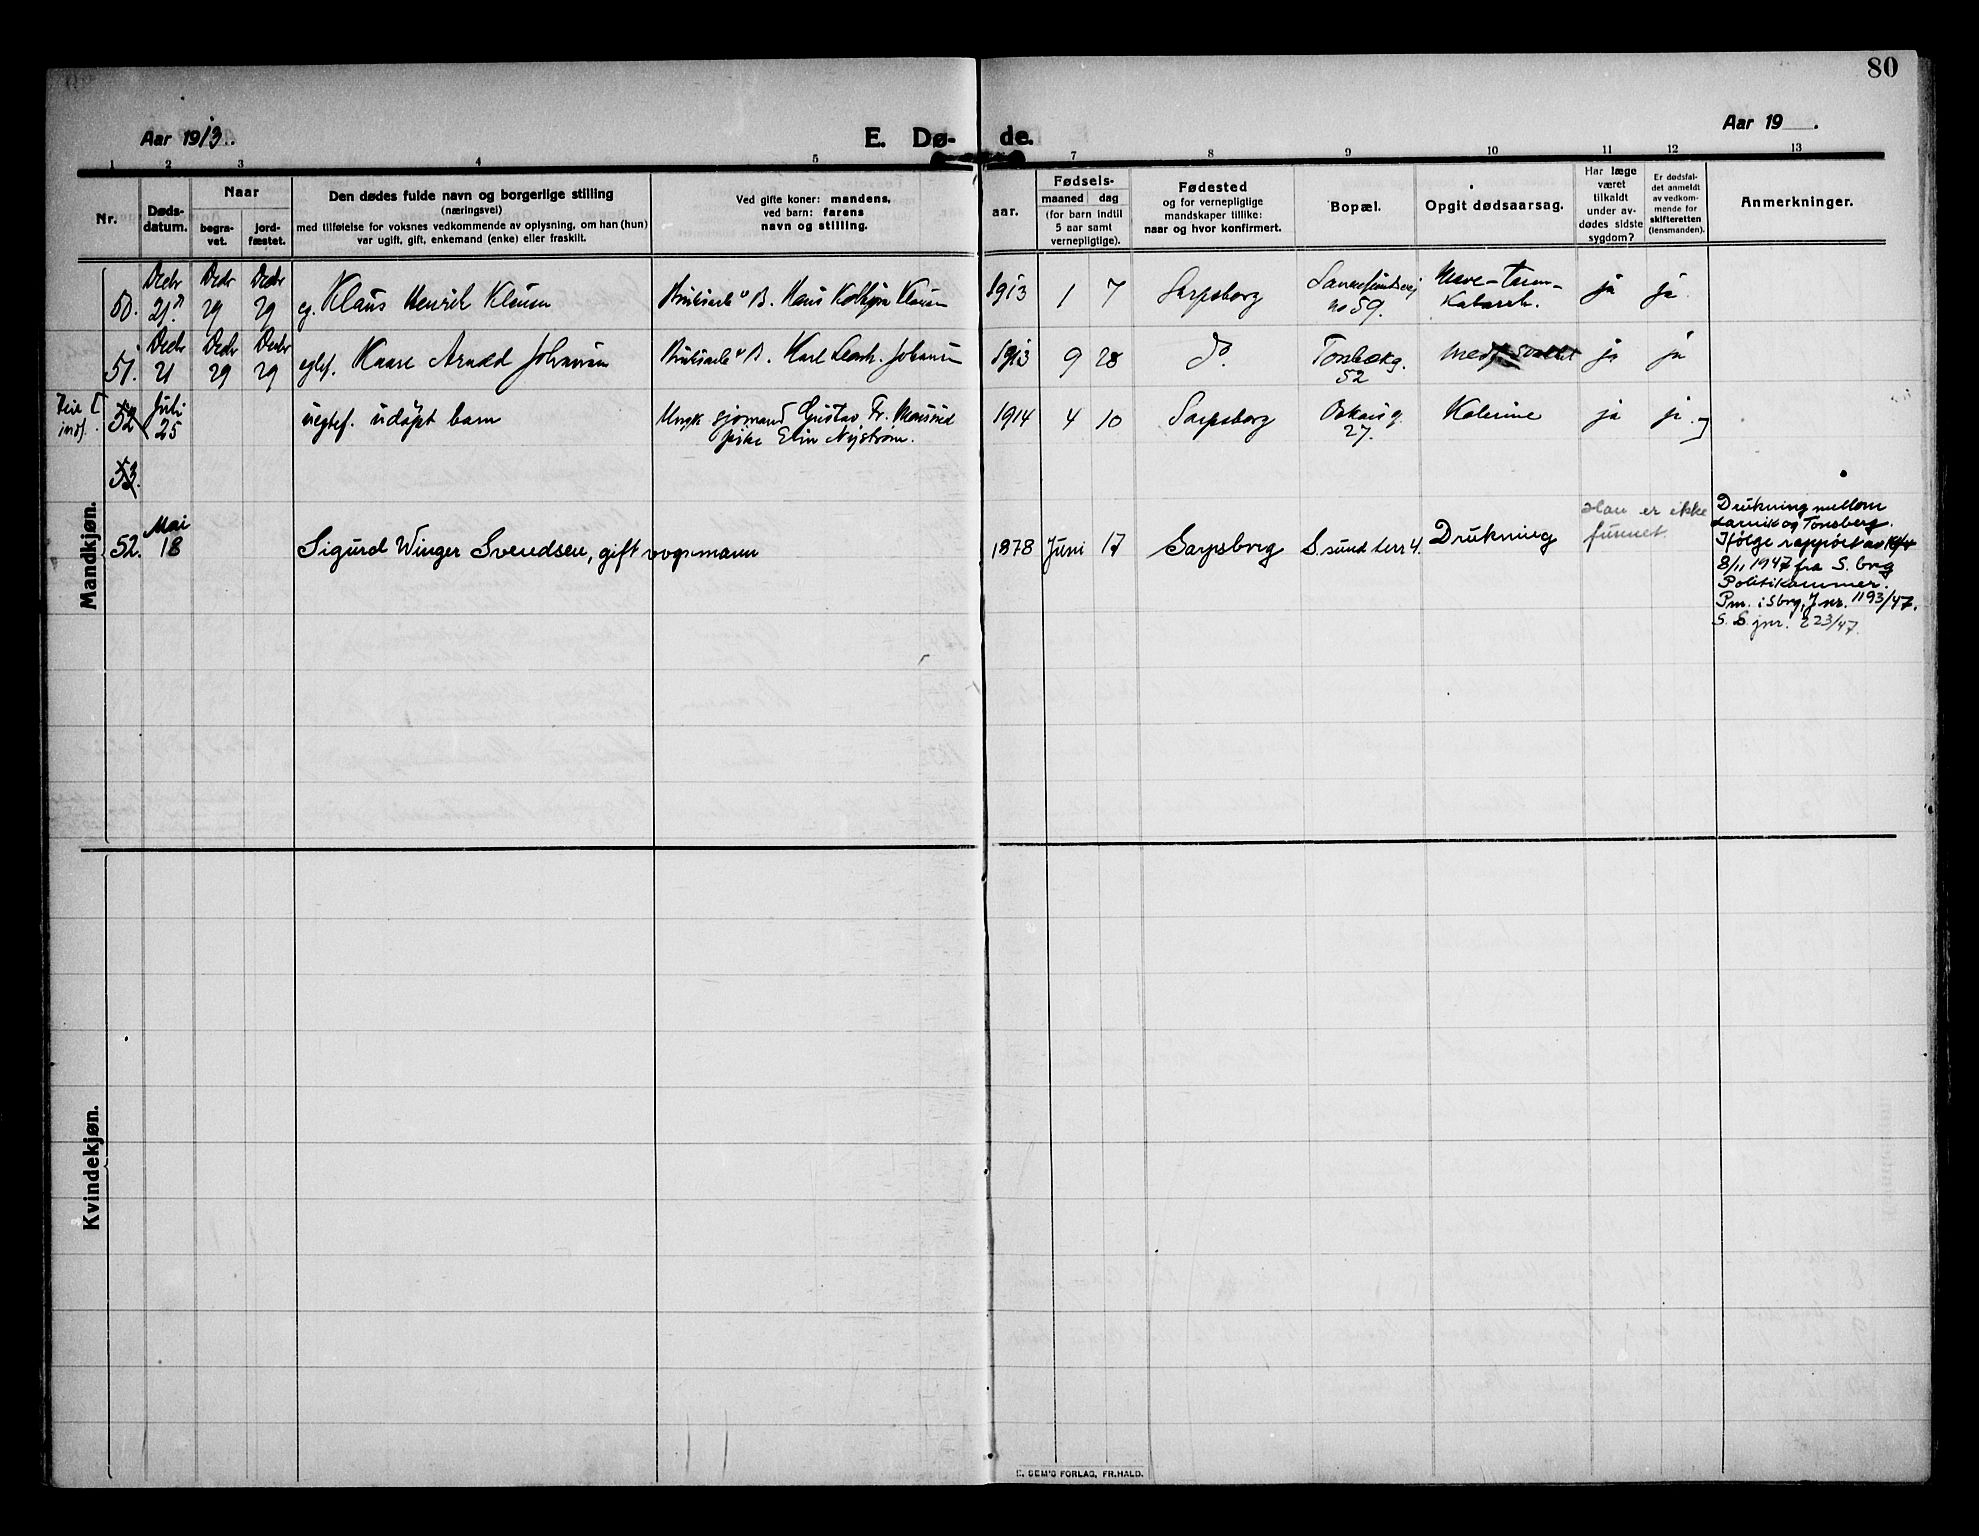 80
Aar 1913.
E. Dø- de.
Aar 19 .
1 2 3 4 5 7 8 9 10 11 12 13
Nr.
Døds-
datum.
Naar
begra-
vet.
jord-
fæstet.
Den dødes fulde navn og borgerlige stilling
(næringsvei)
med tilføielse for voksnes vedkommende av oplysning, om han (hun)
var ugift, gift, enkemand (enke) eller fraskilt.
Ved gifte koner: mandens,
ved barn: farens
navn og stilling.
aar.
Fødsels-
maaned dag
(for barn indtil
5 aar samt
vernepligtige).
Fødested
og for vernepligtige
mandskaper tillike:
naar og hvor konfirmert.
Bopæl.
Opgit dødsaarsag.
Har læge
været
tilkaldt
under av-
dødes sidste
sygdom?
Er dødsfal-
det anmeldt
av vedkom-
mende for
skifteretten
(lensmanden).
Anmerkninger.
Mandkjøn.
50. Decbr 21 Decbr 29 Decbr 29 eg. Klaus Henrik Klausen
B. Hans Klausen
1913 1 7 Sarpsborg
no 59.
Mave-Tarm-
Katarrh.
ja ja.
51. Decbr 21 Decbr 29 Decbr 29 egtef. Kaare Arnold Johansen
B. Karl Johansen
1913 9 28 do.
Tonsbækg.
52
ja ja
52 Juli 25 uegtef. udøpt barn
Ungk sjømand Gustav Fr.
pike Elin Nystrøm.
1914 4 10 Sarpsborg
Oskarsg.
27.
ja ja.
53.
52. Mai 18 Sigurd Winger Svendsen, gift vognmann
1878 Juni 17 Sarpsborg S.sund terr 4. Drukning
Han er ikke
funnet.
Drukning mellom
Larvik og Tønsberg.
Ifølge rapport av
8/11 1947 fra S. brg
Politikammer.
Pm. i Sbrg, J nr. 1193/47.
S. S. jnr. 223/47.
Kvindekjøn.
E. SEM'S FORLAG, FR.HALD.